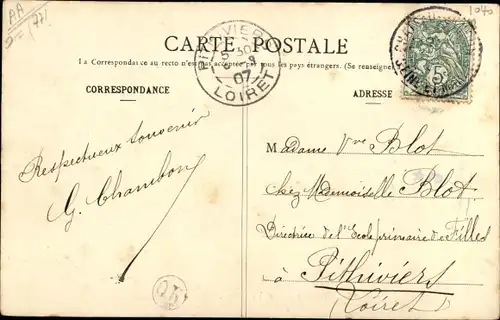 AA
(77)
1040
CARTE POSTALE
La Correspondance au recto n'est pas acceptée par tous les pays étrangers. (Se renseigner
PITHIVIERS
5 30
07
LOIRET
5
CORRESPONDANCE
ADRESSE
Respectueux souvenir
G. Chambon
Madame Vve Blot
chez Mademoiselle Blot
Directrice de l'Ecole primaire de Filles
à Pithiviers
(Loiret)